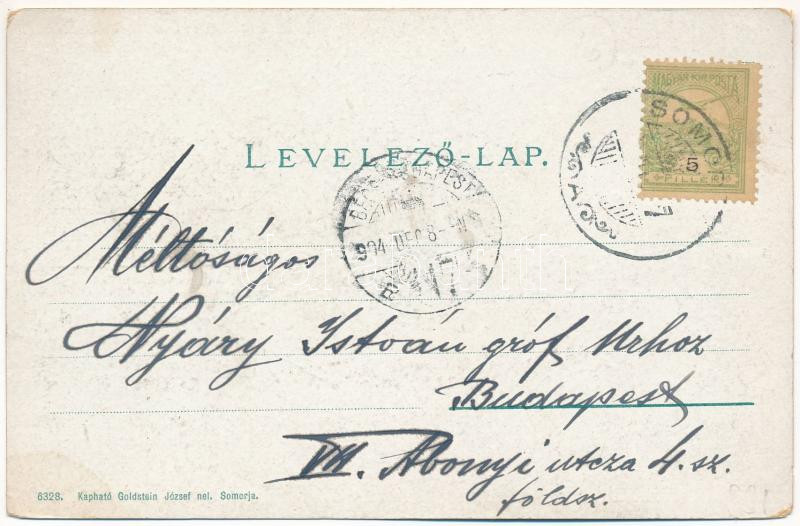 MAGYAR KIR. POSTA
5
FILLÉR
SOMO
LEVELEZŐ-LAP.
904 DEC 8
Méltóságos
Nyáry István gróf Urhoz
Budapest
VII. Abonyi utcza 4. sz.
földsz.
6328. Kapható Goldstein József nel. Somorja.